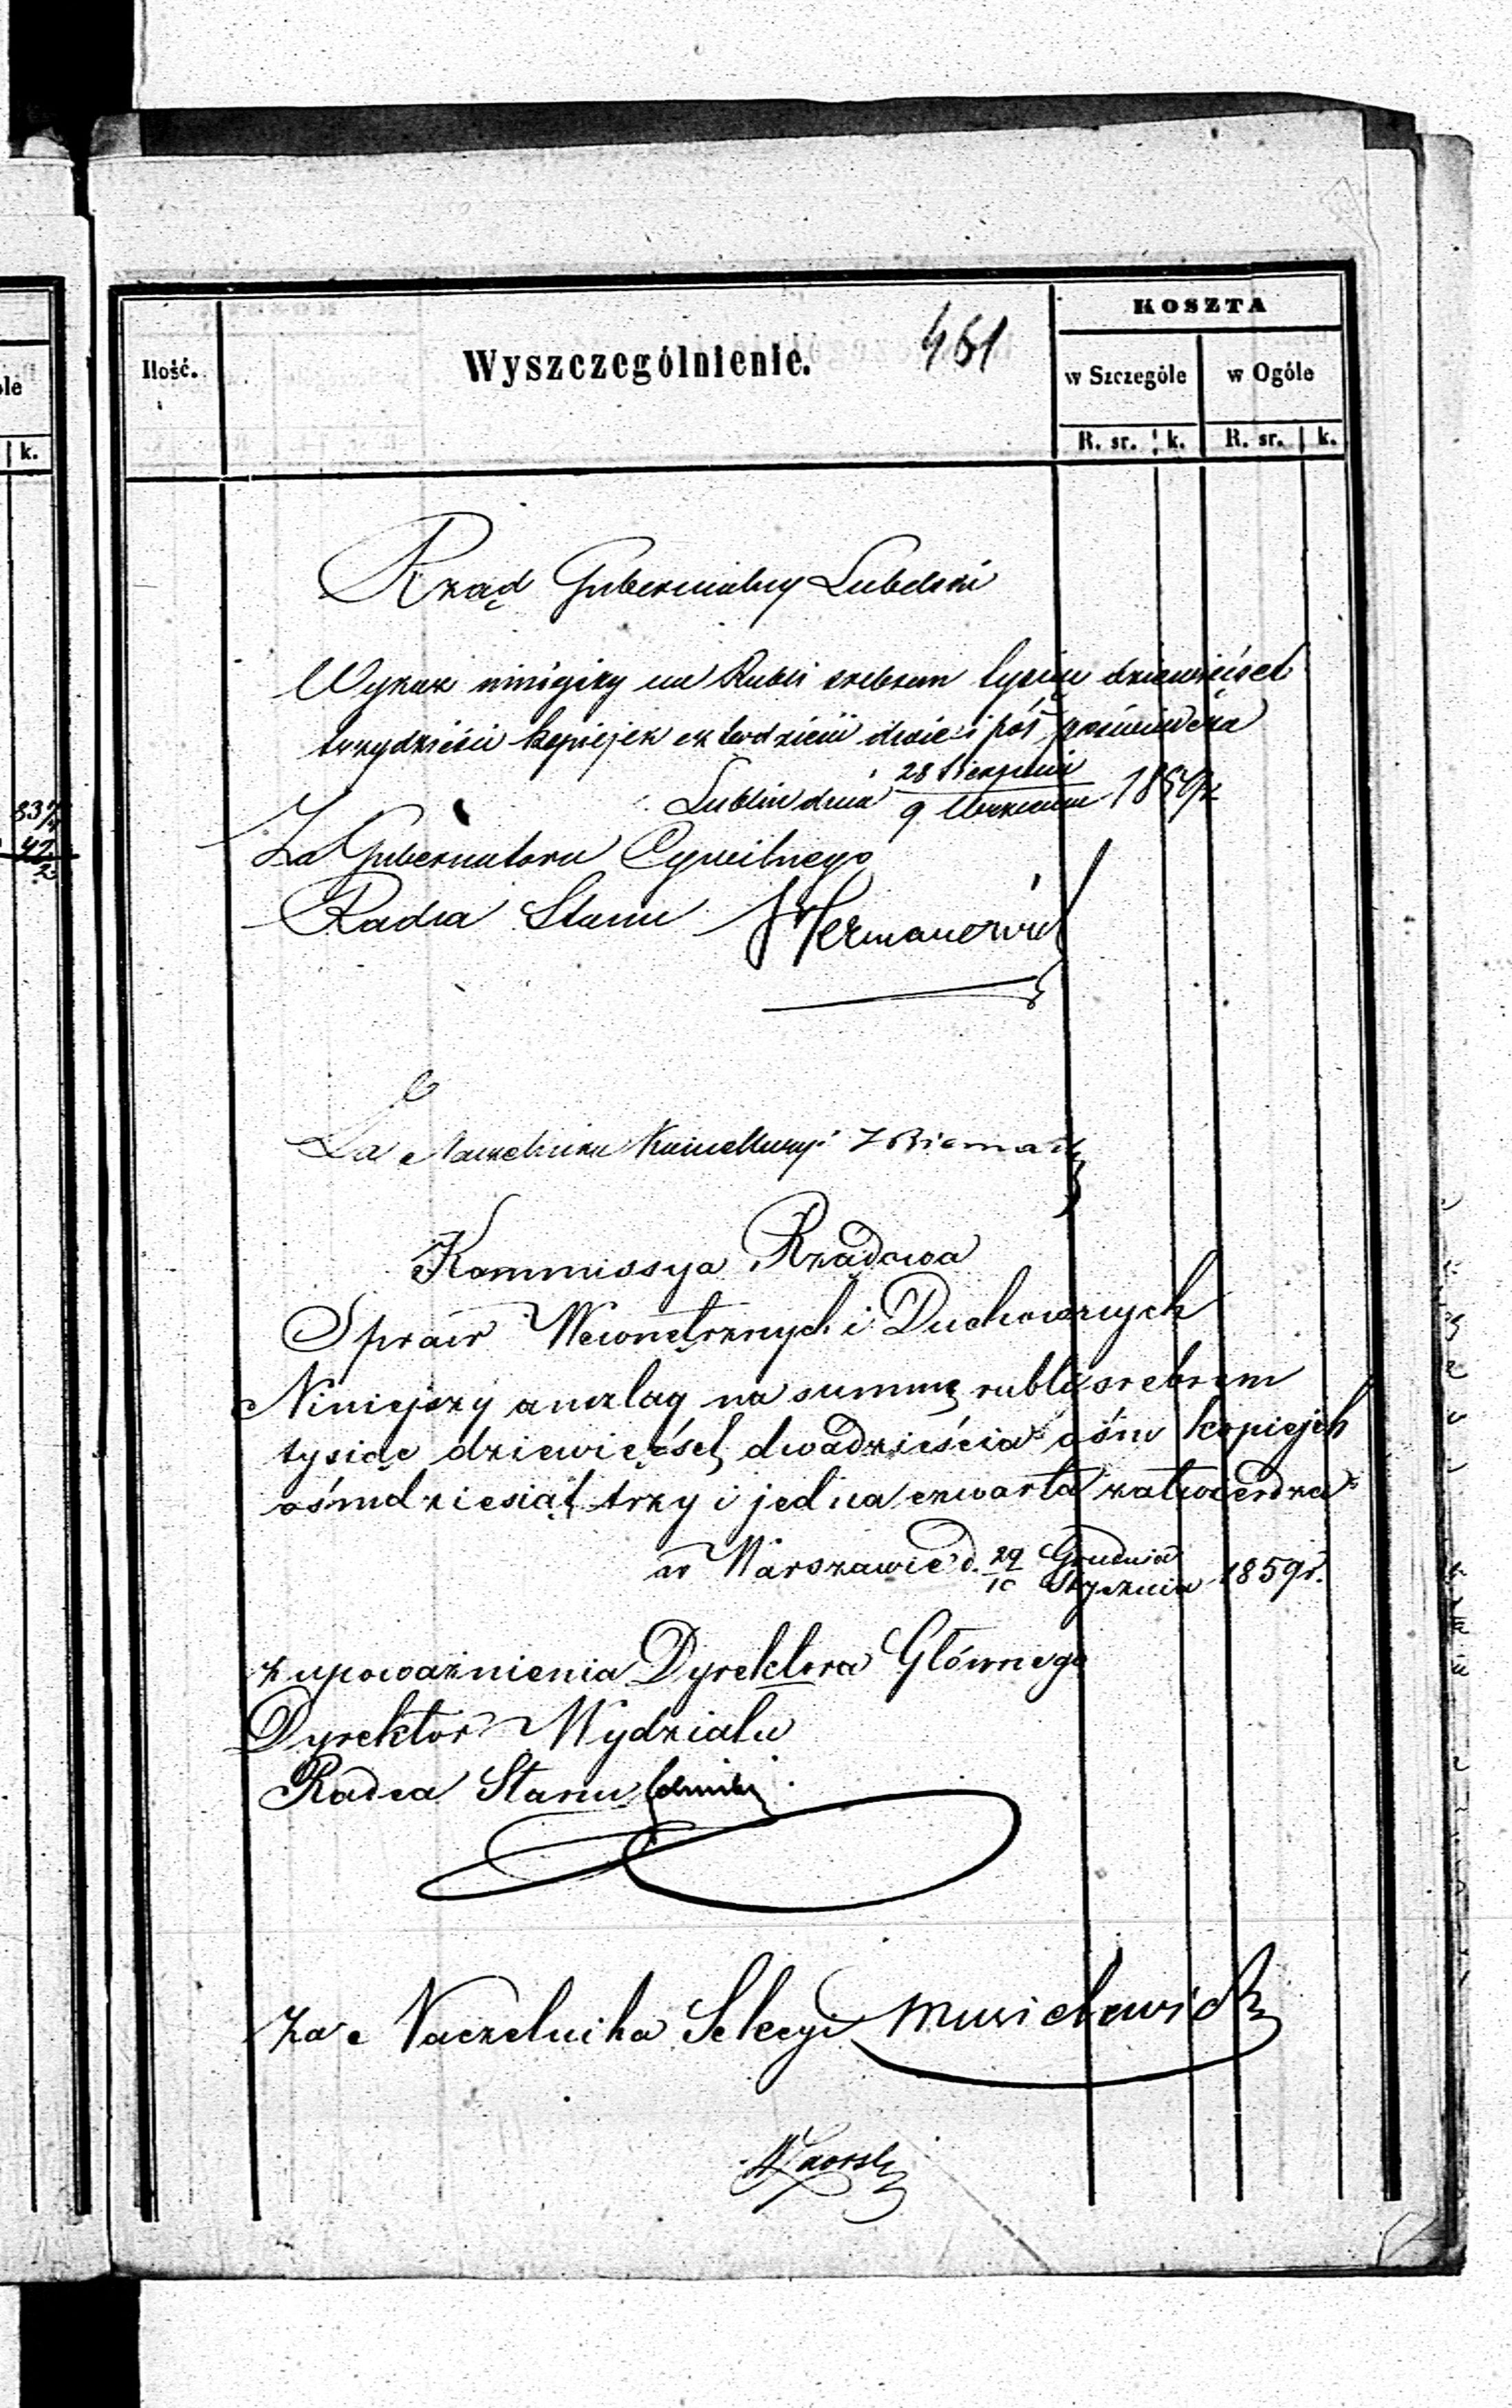 KOSZTA
Ilość. Wyszczególnienie. 461 w Szczególe w Ogóle
R. sr. k. R. sr. k.
Rząd Gubernialny Lubelski
Wykaz niniejszy na Rubli srebrem tysiąc dziewięćset
trzydzieści kopiejek czterdzieści dwie i pół poświadcza
Lublin dnia 28 Sierpnia / 9 Września 1859 r.
Za Gubernatora Cywilnego
Radca Stanu Hermanowicz
Za Naczelnika Kancellaryi
Kommissya Rządowa
Spraw Wewnętrznych i Duchownych
Niniejszy anszlag na summę rubli srebrem
tysiąc dziewięćset dwadzieścia ośm kopiejek
ośmdziesiąt trzy i jedna czwarta zatwierdza
w Warszawie d. 29 Grudnia / 10 Stycznia 1859 r.
z upoważnienia Dyrektora Głównego
Dyrektor Wydziału
Radca Stanu
Za Naczelnika Sekcyi
ole
k.
83 1/4
42